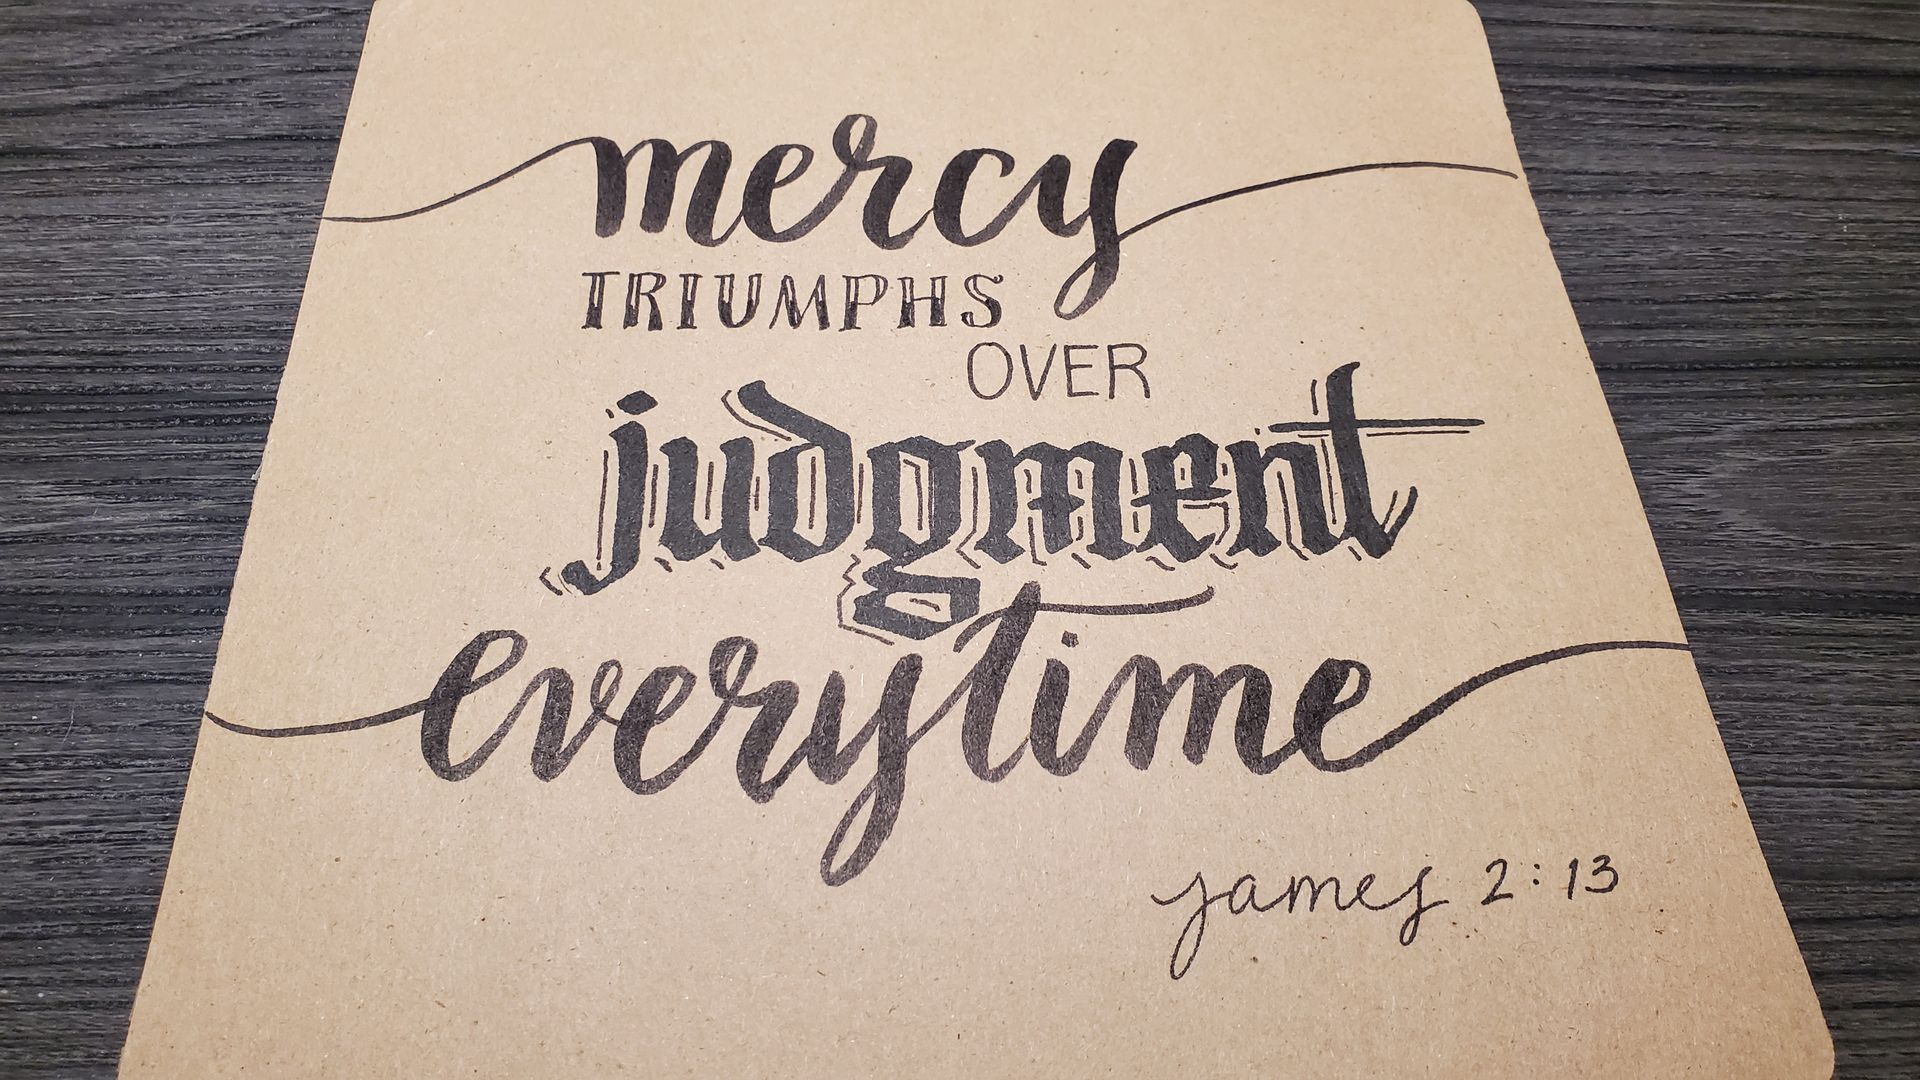 mercy
TRIUMPHS
OVER
judgment
everytime
james 2:13